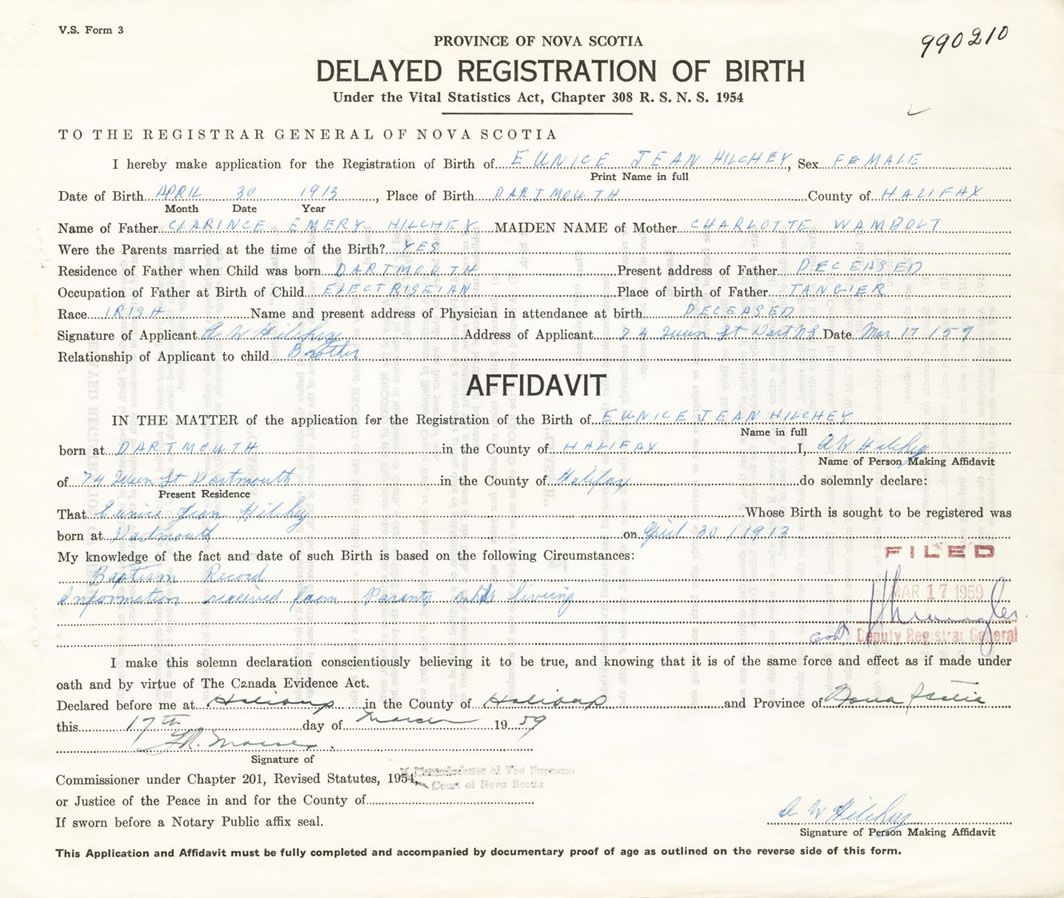 V.S. Form 3
990210
PROVINCE OF NOVA SCOTIA
DELAYED REGISTRATION OF BIRTH
Under the Vital Statistics Act, Chapter 308 R. S. N. S. 1954
TO THE REGISTRAR GENERAL OF NOVA SCOTIA
I hereby make application for the Registration of Birth of EUNICE JEAN HILCHEY, Sex FEMALE
Print Name in full
Date of Birth APRIL 30 1913, Place of Birth DARTMOUTH County of HALIFAX
Month Date Year
Name of Father CLARINCE EMERY HILCHEY MAIDEN NAME of Mother CHARLOTTE WAMBOLT
Were the Parents married at the time of the Birth? YES
Residence of Father when Child was born DARTMOUTH Present address of Father DECEASED
Occupation of Father at Birth of Child ELECTRISEIAN Place of birth of Father TANGIER
Race IRISH Name and present address of Physician in attendance at birth DECEASED
Signature of Applicant A W Hilchey Address of Applicant 74 Queen St Dart N.S. Date Mar 17/59
Relationship of Applicant to child Brother
AFFIDAVIT
IN THE MATTER of the application for the Registration of the Birth of EUNICE JEAN HILCHEY
Name in full
born at DARTMOUTH in the County of HALIFAX I, A W Hilchey
Name of Person Making Affidavit
of 74 Queen St Dartmouth in the County of Halifax do solemnly declare:
Present Residence
That Eunice Jean Hilchey Whose Birth is sought to be registered was
born at Dartmouth on April 30/1913
My knowledge of the fact and date of such Birth is based on the following Circumstances:
FILED
Baptism Record
MAR 17 1959
Information received from Parents while living
Deputy Registrar General
I make this solemn declaration conscientiously believing it to be true, and knowing that it is of the same force and effect as if made under
oath and by virtue of The Canada Evidence Act.
Declared before me at Halifax in the County of Halifax and Province of Nova Scotia
this 17th day of March 1959
Signature of
Commissioner under Chapter 201, Revised Statutes, 1954,
A Commissioner of The Supreme
Court of Nova Scotia
or Justice of the Peace in and for the County of
If sworn before a Notary Public affix seal.
A W Hilchey
Signature of Person Making Affidavit
This Application and Affidavit must be fully completed and accompanied by documentary proof of age as outlined on the reverse side of this form.